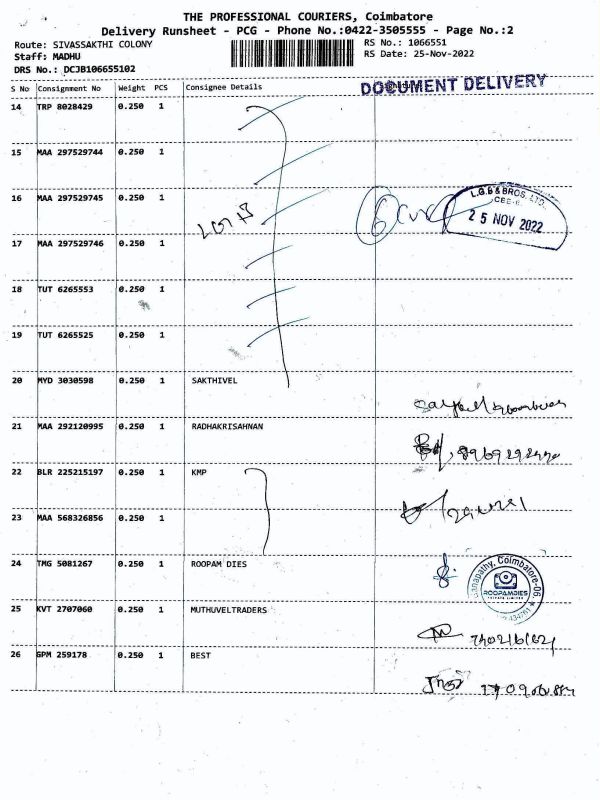 THE PROFESSIONAL COURIERS, Coimbatore
Delivery Runsheet - PCG - Phone No.:0422-3505555 - Page No.:2
Route: SIVASSAKTHI COLONY
RS No.: 1066551
Staff: MADHU
RS Date: 25-Nov-2022
DRS No.: DCJB106655102
S No Consignment No Weight PCS Consignee Details
DOCUMENT DELIVERY
14 TRP 8028429 0.250 1
15 MAA 297529744 0.250 1
16 MAA 297529745 0.250 1
L.G.B & BROS. LTD.
25 NOV 2022
17 MAA 297529746 0.250 1
18 TUT 6265553 0.250 1
19 TUT 6265525 0.250 1
20 MYD 3030598 0.250 1 SAKTHIVEL
21 MAA 292120995 0.250 1 RADHAKRISAHNAN
22 BLR 225215197 0.250 1 KMP
23 MAA 568326856 0.250 1
24 TMG 5081267 0.250 1 ROOPAM DIES
Ganapathy, Coimbatore-06.
ROOPAMDIES
PRIVATE LIMITED
25 KVT 2707060 0.250 1 MUTHUVELTRADERS
26 GPM 259178 0.250 1 BEST